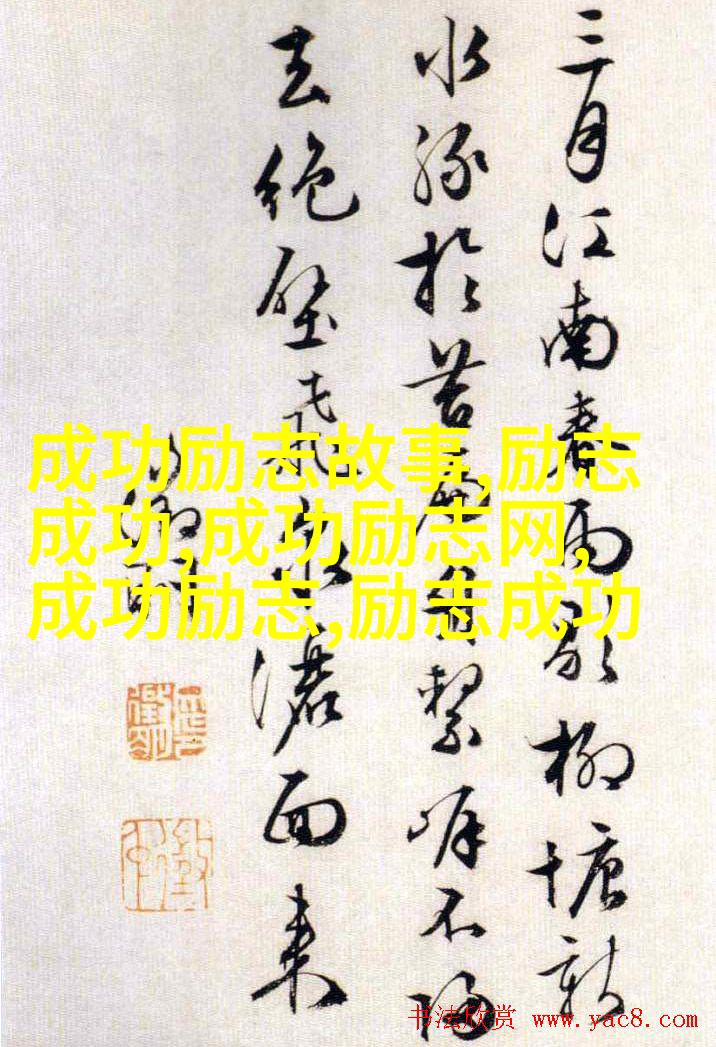 三月江南春雨歇柳塘新
水绿于苔扁舟系岸不归
去绝壁飞泉洒面来
成功励志故事,励志
成功,成功励志网,
成功励志,励志成功
书法欣赏 www.yac8.com